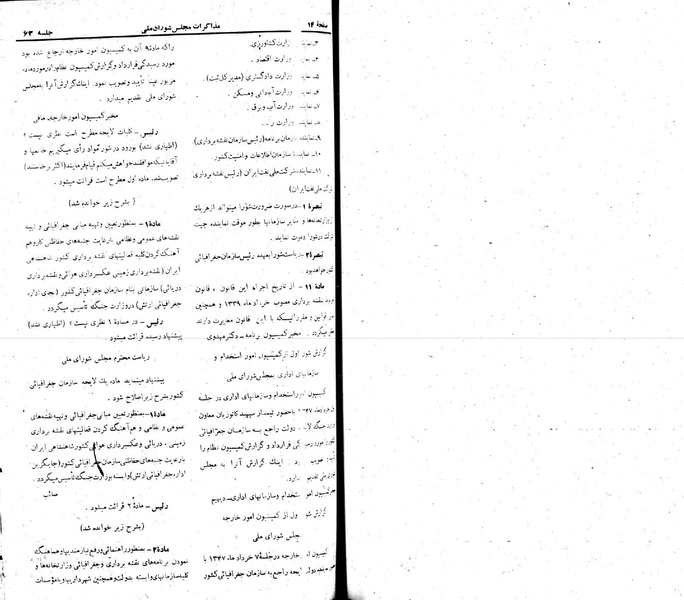 صفحهٔ ۱۴
مذاکرات مجلس شورای ملی
جلسه ۶۳
وزارت کشاورزی.
وزارت اقتصاد.
وزارت دادگستری (مدیرکل ثبت)
وزارت آبادانی ومسکن.
وزارت آب و برق.
۹ـ نماینده سازمان برنامه (رئیس سازمان نقشه برداری).
۱۰ـ نماینده سازمان اطلاعات و امنیت کشور.
۱۱ـ نماینده شرکت ملی نفت ایران (رئیس نقشه برداری
شرکت ملی نفت ایران)
تبصرهٔ ۱ـ درصورت ضرورت شورا میتواند ازهریك
وزارتخانه‌ها و سایر سازمانها بطور موقت نماینده جهت
شرکت درشورا دعوت نماید.
تبصره ۲ـ ریاست شورا بعهده رئیس سازمان جغرافیائی
کشورخواهدبود.
مادهٔ ۱۱ ـ از تاریخ اجراء این قانون، قانون
نقشه برداری مصوب خرداد ماه ۱۳۳۹ و همچنین
قوانین و مقرراتیکه با این قانون مغایرت دارند
میگردد. مخبرکمیسیون برنامه ـ دکترمهدوی
گزارش شور اول از کمیسیون امور استخدام و
سازمانهای اداری بمجلس شورای ملی
کمیسیون امور استخدام وسازمانهای اداری در جلسه
باحضور تیمسار سپهبد کاتوزیان معاون
دولت راجع به سازمان جغرافیائی
مورد رسیدگی قرارداد و گزارش کمیسیون نظام را
تصویب کرد. اینك گزارش آنرا به مجلس
شورای ملی تقدیم میدارد.
مخبرکمیسیون امور استخدام وسازمانهای اداری ـ دیهیم
گزارش شور اول از کمیسیون امور خارجه
مجلس شورای ملی
کمیسیون امور خارجه درجلسهٔ ۷ خرداد ماه ۱۳۴۷ با
لایحه راجع به سازمان جغرافیائی کشور
راکه مادهٔ ۹ آن به کمیسیون امور خارجه ارجاع شده بود
مورد رسیدگی قرارداد و گزارش کمیسیون نظام را درموردماده
مزبور عیناً تأیید وتصویب نمود. اینك گزارش آنرا به مجلس
شورای ملی تقدیم میدارد.
مخبرکمیسیون امورخارجه. صائبی
رئیس ـ کلیات لایحه مطرح است نظری نیست؟
(اظهاری نشد) بورود در شور مواد رأی میگیریم خانمها و
آقایانیکه موافقند خواهش میکنم قیام فرمایند (اکثر برخاستند)
تصویب شد. ماده اول مطرح است قرائت میشود.
(بشرح زیر خوانده شد)
مادهٔ ۱ ـ بمنظورتعیین وتهیه مبانی جغرافیائی و تهیه
نقشه‌های عمومی ونظامی بارعایت جنبه‌های حفاظتی کاروهم
آهنگ کردن کلیه فعالیتهای نقشه برداری کشور شاهنشاهی
ایران (نقشه برداری زمینی عکسبرداری هوائی و نقشه برداری
دریائی) سازمانی بنام سازمان جغرافیائی کشور (بجای اداره
جغرافیائی ارتش) دروزارت جنگ تأسیس میگردد.
رئیس ـ در مادهٔ ۱ نظری نیست؟ (اظهاری نشد)
پیشنهاد رسیده قرائت میشود.
ریاست محترم مجلس شورای ملی
پیشنهاد مینماید ماده یك لایحه سازمان جغرافیائی
کشور بشرح زیر اصلاح شود.
مادهٔ ۱ـ بمنظور تعیین مبانی جغرافیائی و تهیه نقشه‌های
عمومی و نظامی و هم آهنگ کردن فعالیتهای نقشه برداری
زمینی، دریائی وعکسبرداری هوائی کشورشاهنشاهی ایران
بارعایت جنبه‌های حفاظتی سازمان جغرافیائی کشور (جایگزین
اداره جغرافیائی ارتش) وابسته بوزارت جنگ تأسیس میگردد.
صائب
رئیس ـ مادهٔ ۲ قرائت میشود.
(بشرح زیر خوانده شد)
مادهٔ ۲ ـ بمنظور راهنمائی ورفع نیازمندیها وهماهنگ
نمودن برنامه‌های نقشه برداری وجغرافیائی وزارتخانه‌ها و
کلیه سازمانهای وابسته به دولت وهمچنین شهرداریها و یا مؤسسات